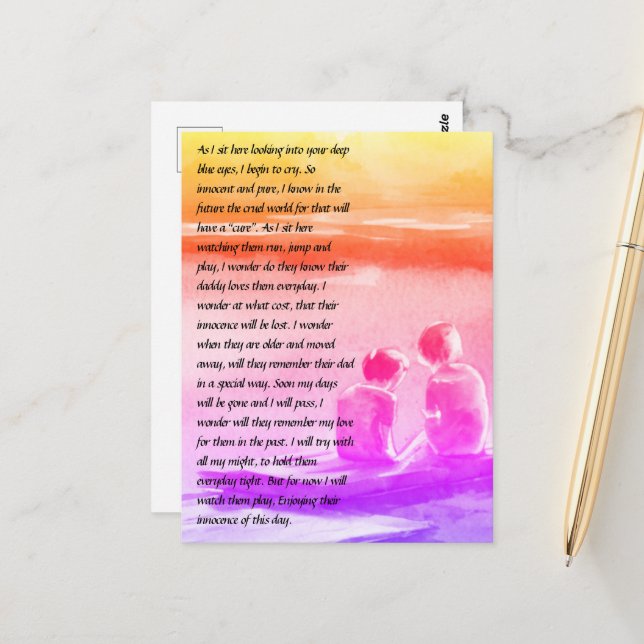 zzle
As I sit here looking into your deep
blue eyes, I begin to cry. So
innocent and pure, I know in the
future the cruel world for that will
have a “cure”. As I sit here
watching them run, jump and
play, I wonder do they know their
daddy loves them everyday. I
wonder at what cost, that their
innocence will be lost. I wonder
when they are older and moved
away, will they remember their dad
in a special way. Soon my days
will be gone and I will pass, I
wonder will they remember my love
for them in the past. I will try with
all my might, to hold them
everyday tight. But for now I will
watch them play, Enjoying their
innocence of this day.